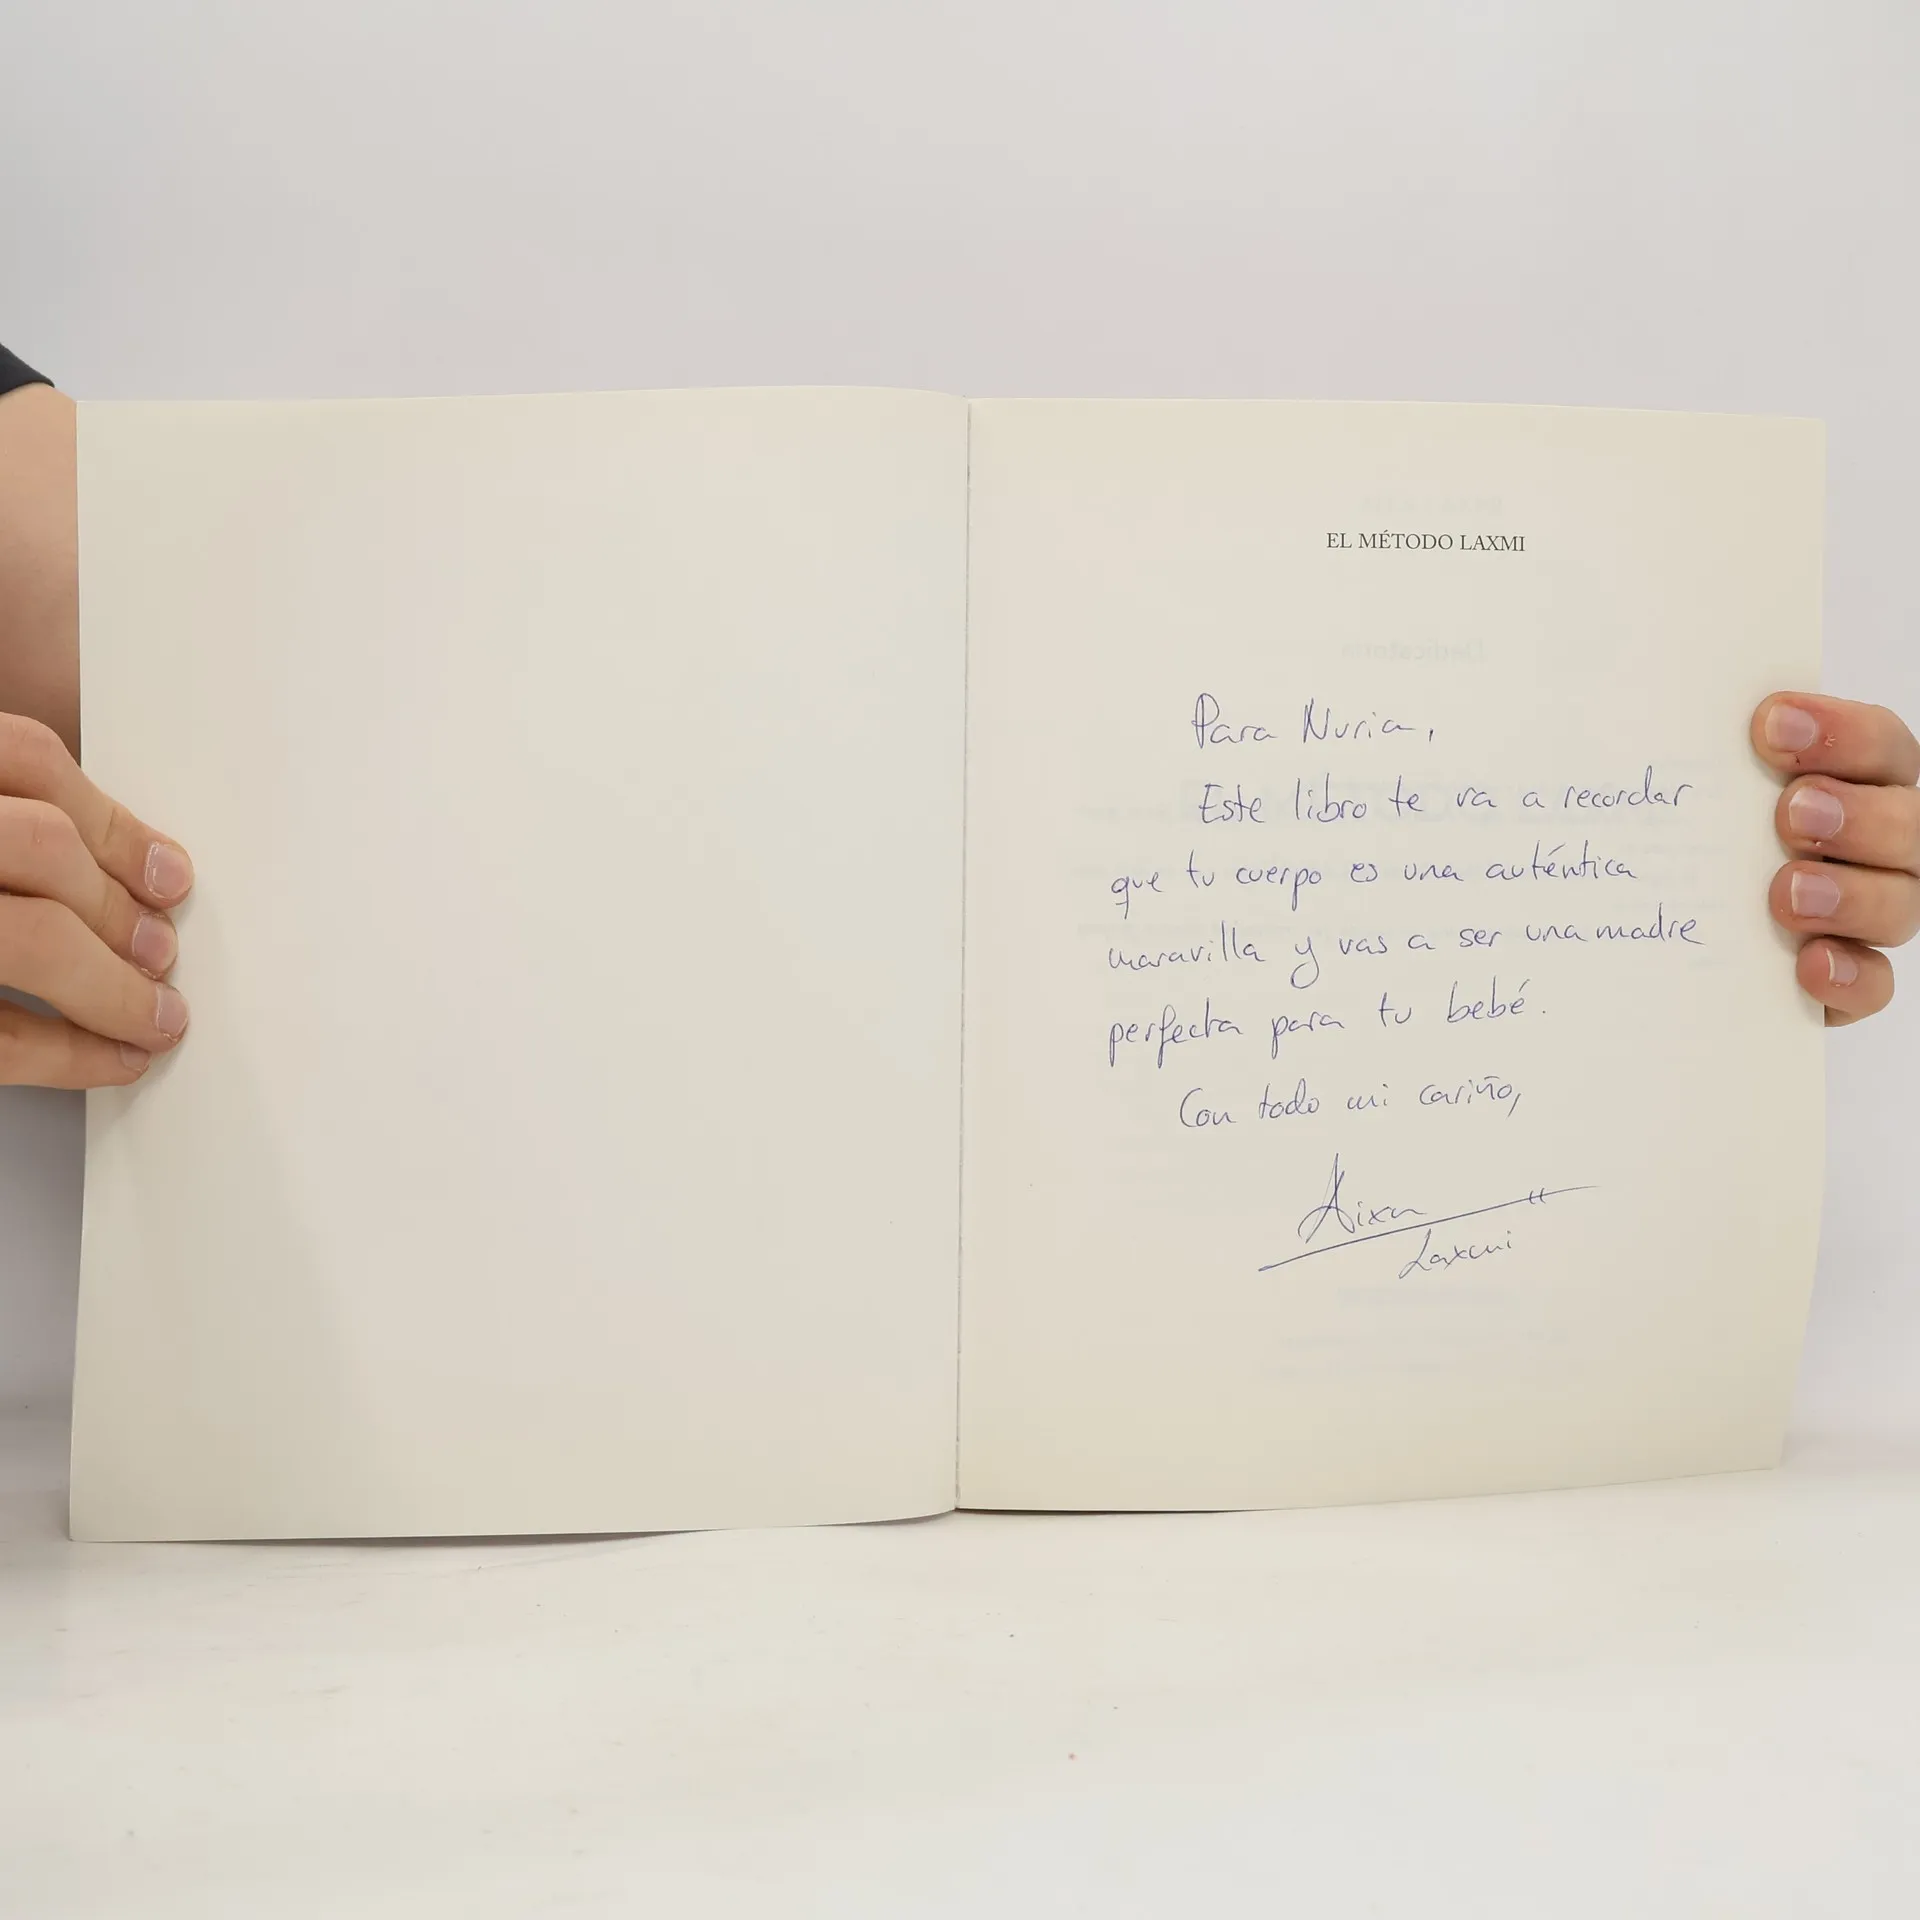 EL MÉTODO LAXMI
Para Nuria,
Este libro te va a recordar
que tu cuerpo es una auténtica
maravilla y vas a ser una madre
perfecta para tu bebé.
Con todo mi cariño,
Aixa
Laxmi